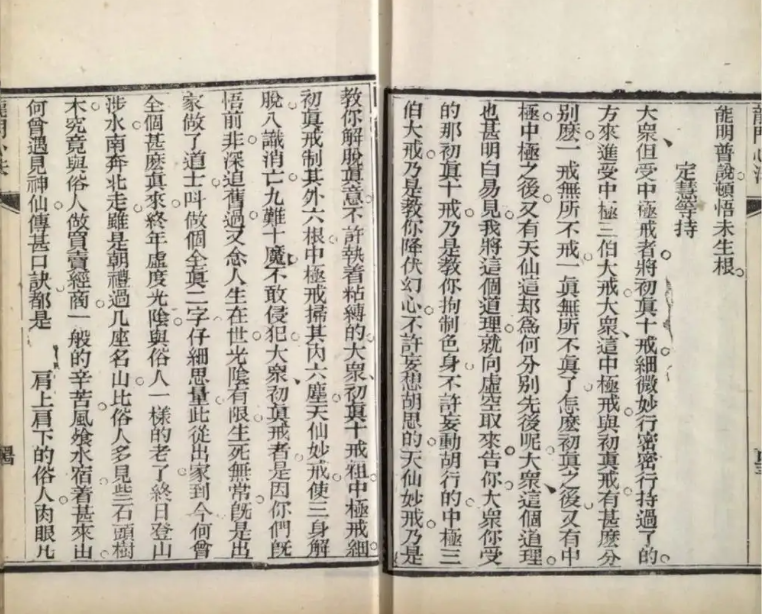 龍門心法
能明普說頓悟未生根
定慧等持
大衆但受中極戒者將初眞十戒細微妙行密密行持過了的
方來進受中極三伯大戒大衆這中極戒與初眞戒有甚麽分
別麽一戒無所不戒一眞無所不眞了怎麽初眞之後又有中
極中極之後又有天仙這却爲何分别先後呢大衆這個道理
也甚明白易見我將這個道理就向虛空取來告你大衆你受
的那初眞十戒乃是教你拘制色身不許妄動胡行的中極三
伯大戒乃是教你降伏幻心不許妄想胡思的天仙妙戒乃是
教你解脫眞意不許執着粘縛的大衆初眞十戒祖中極戒細
初眞戒制其外六根中極戒掃其内六塵天仙妙戒使三身解
脫八識消亡九難十魔不敢侵犯大衆初眞戒者是因你們旣
悟前非深追舊過又念人生在世光陰有限生死無常旣是出
家做了道士呌做個全眞二字仔細思量此從出家到今何曾
全個甚麽眞來終年虛度光陰與俗人一樣的老了終日登山
涉水南奔北走雖是朝禮過几座名山比俗人多見些石頭樹
木究竟與俗人做買賣經商一般的辛苦風飧水宿着甚來由
何曾遇見神仙傳甚口訣都是 肩上肩下的俗人肉眼凡